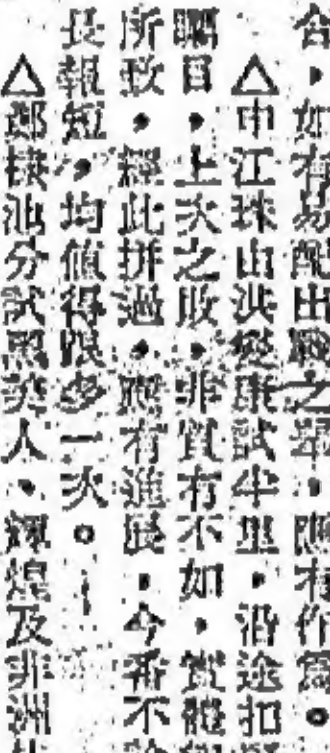 合，如有易配出戰之羣，應有作爲。
△中江珠山洪燮康試半里，沿途扣
矚目，上次之敗，非質有不如，實體
所致，經此拼過，應有進展，今番不
長報短，均值得跟多一次。
△鄭棣池分試黑美人，輝煌及非洲